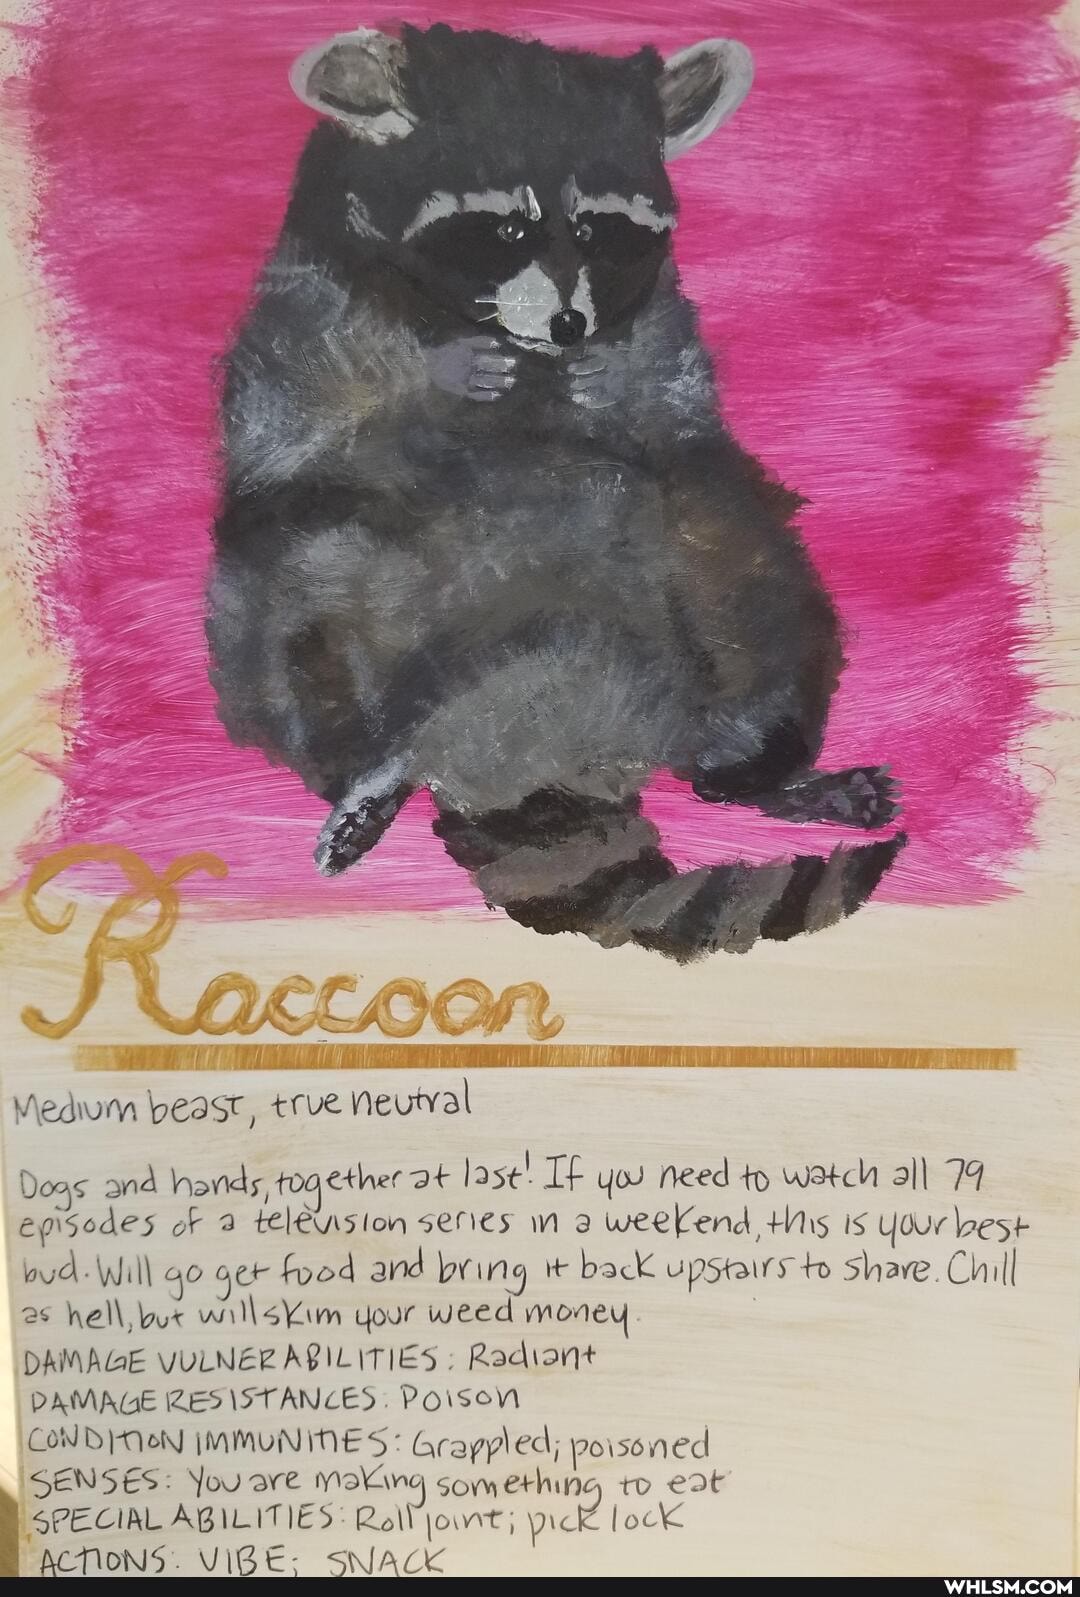 Raccoon
Medium beast, true neutral
Dogs and hands, together at last! If you need to watch all 79
episodes of a television series in a weekend, this is your best
bud. Will go get food and bring it back upstairs to share. Chill
as hell, but will skim your weed money.
DAMAGE VULNERABILITIES: Radiant
DAMAGE RESISTANCES: Poison
CONDITION IMMUNITIES: Grappled; poisoned
SENSES: You are making something to eat
SPECIAL ABILITIES: Roll joint; pick lock
ACTIONS: VIBE; SNACK
WHLSM.COM